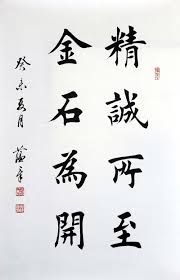 精誠所至
金石為開
癸未五月